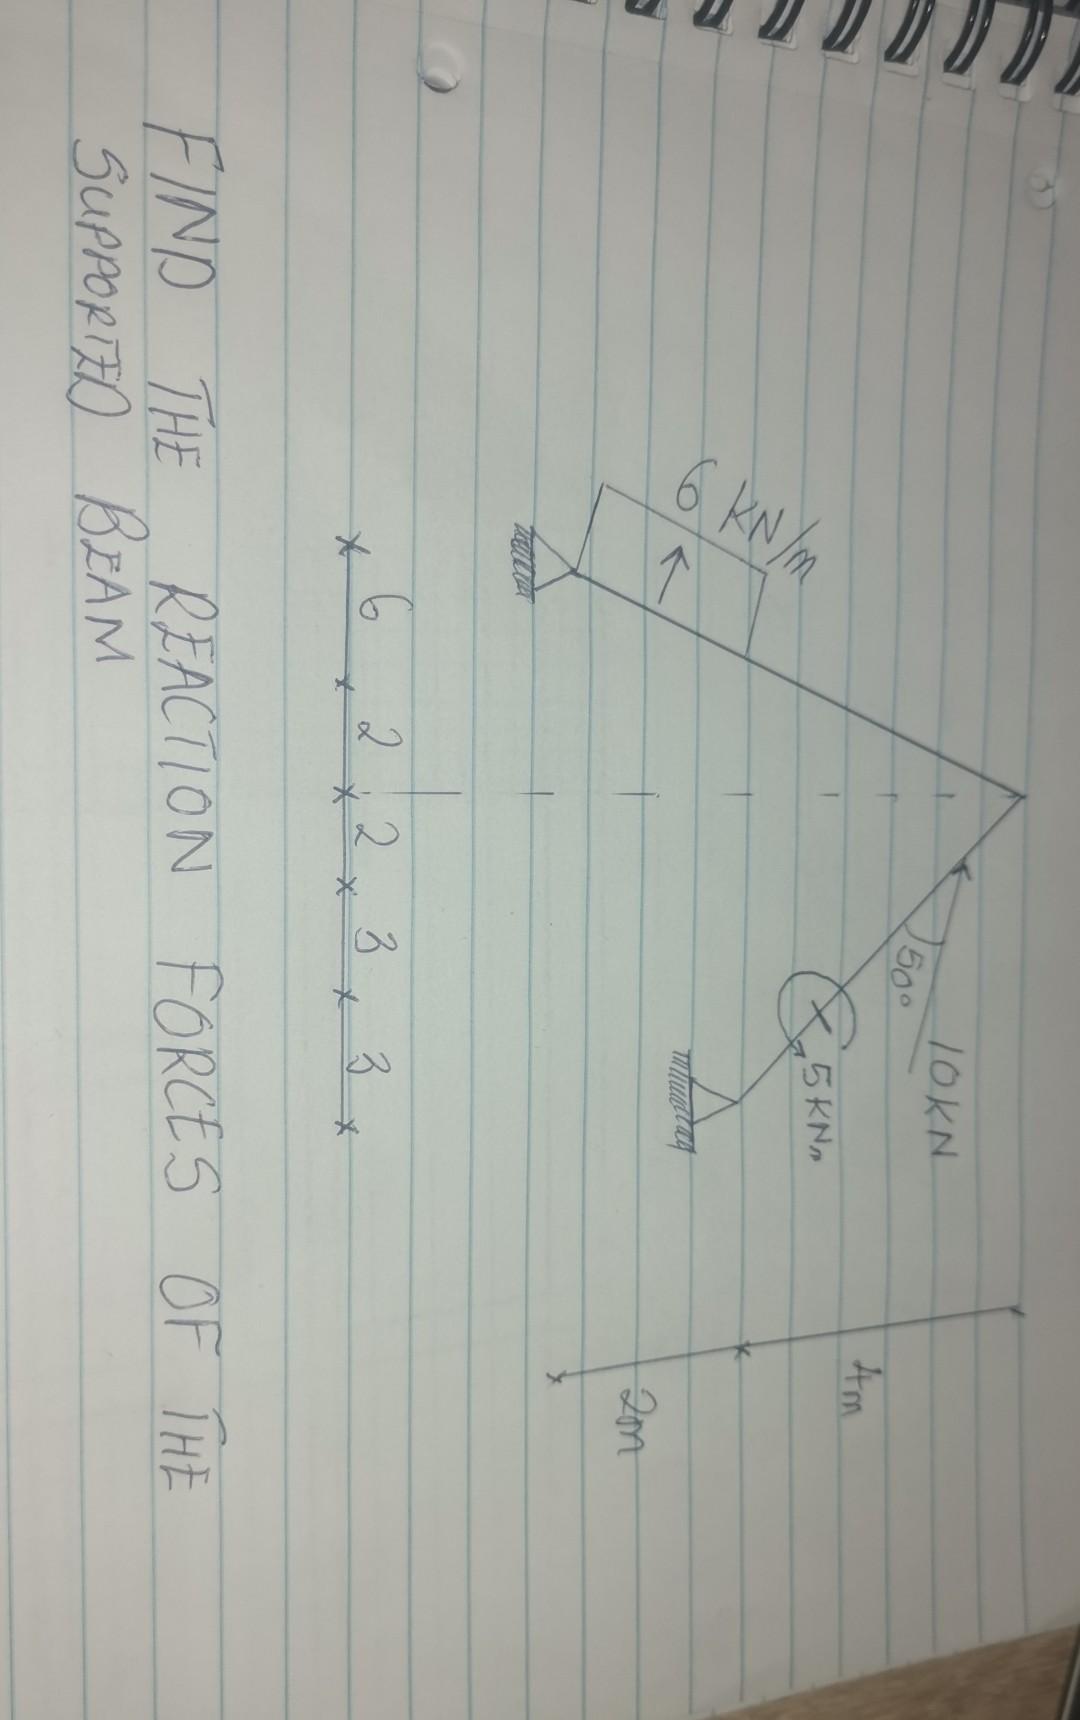 10KN
50°
6 KN/m
5KNm
4m
2m
6 2 2 3 3
FIND THE REACTION FORCES OF THE
SUPPORTED BEAM